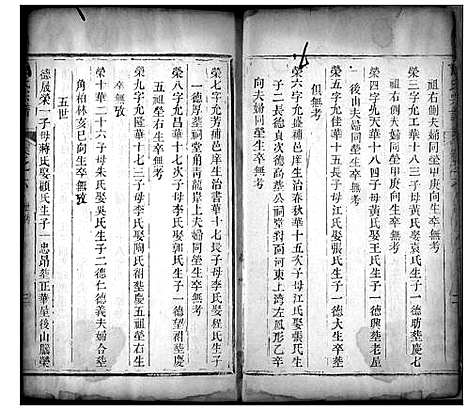 榮三字允富華十四子母黃氏娶袁氏生子一德功塟慶七
祖右側夫婦同塋甲庚向生卒無考
榮四字允天華十八四子母黃氏娶王氏生子一德興塟老屋
後山夫婦同塋生卒無考
榮五字允佳華十五長子母江氏娶張氏生子一德大生卒塟
俱無考
榮六字允盛補邑庠生治春秋華十五次子母江氏娶張氏生
子二長德貞次德高塟公祠堂對面河東上湾左鳳形乙辛
向夫婦同塋生卒無考
榮七字允芳補邑庠生治書華十七長子母李氏娶程氏生子
一德厚塟祠堂角青龍岸上夫婦同塋生卒無考
榮八字允高華十七次子母李氏娶氏生子一德望祔塟慶
五祖塋右生卒無考
榮九字允隆華十七三子母李氏娶陶氏祔塟慶五祖塋右生
卒無攷
榮十華二十六子母朱氏娶吳氏生子二德仁德義夫婦合塟
角柏林亥巳向生卒無攷
五世
德展榮一子母蔣氏娶顧氏生子一忠昂塟正華星後山腦塋